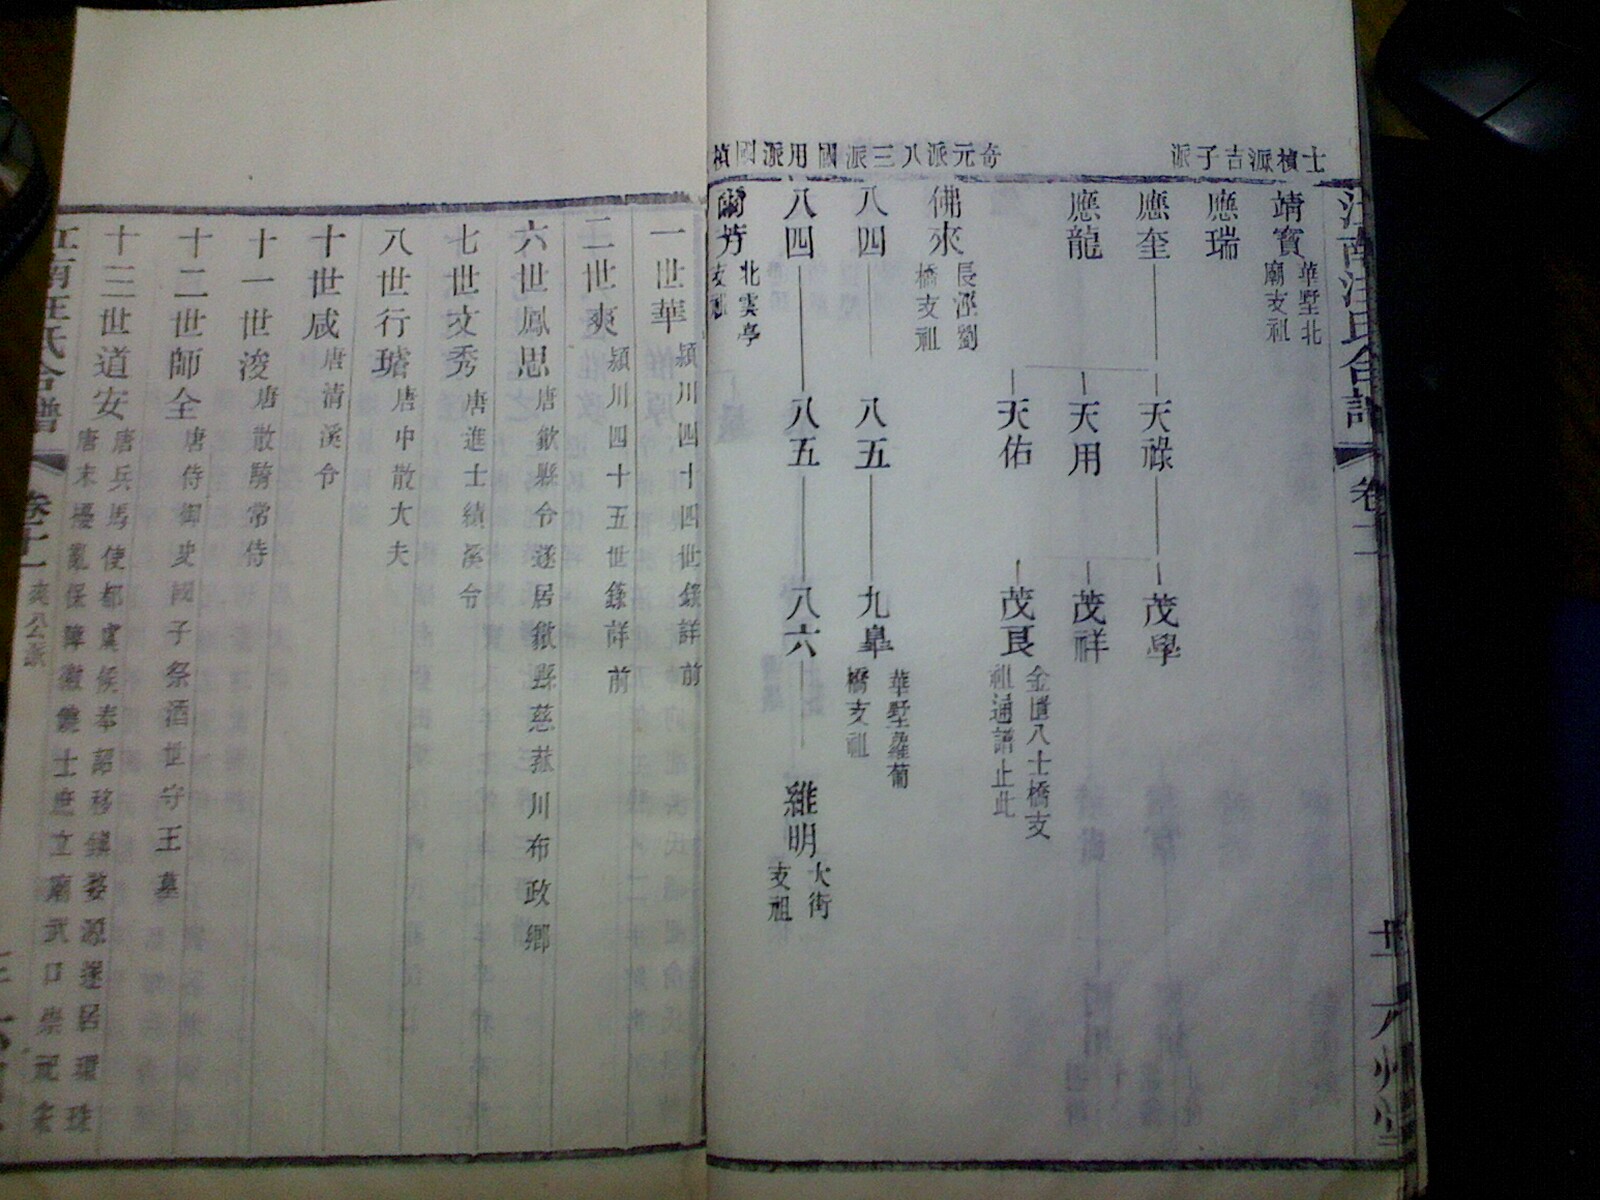 江南汪氏合譜
六州堂
士楨派吉子派
奇元派八三派國用派四楨
靖寶 華墅北
廟支祖
應瑞
應奎 天祿 茂學
應龍 天用 茂祥
天佑 茂良 金匱八士橋支
祖通譜止此
佛來 長涇劉
橋支祖
八四 八五 九皐 華墅蘿蔔
橋支祖
八四 八五 八六 維明 大街
支祖
爾芳 北雲亭
一世華 潁川四十四世錄詳前
二世爽 潁川四十五世錄詳前
六世鳳思 唐歙縣令遂居歙縣慈菰川布政鄉
七世文秀 唐進士績溪令
八世行璿 唐中散大夫
十世咸 唐清溪令
十一世浚 唐散騎常侍
十二世師全 唐侍御史國子祭酒世守王墓
十三世道安 唐兵馬使都虞候奉詔移鎮婺源遂居環珠
唐末擾亂保障徽饒士庶立廟武口崇祀
江南汪氏合譜 爽公派